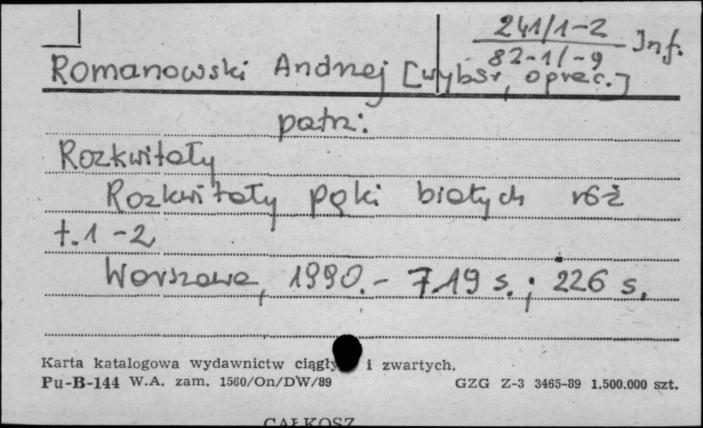 241/1-2
82-1/-9 Inf.
Romanowski Andrzej [wybór, oprac.]
patrz:
Rozkwitały
Rozkwitały pąki białych róż
t.1-2
Warszawa, 1990.- 719 s.; 226 s.
Karta katalogowa wydawnictw ciągły i zwartych.
Pu-B-144 W.A. zam. 1560/On/DW/89 GZG Z-3 3465-89 1.500.000 szt.
CAŁKOSZ